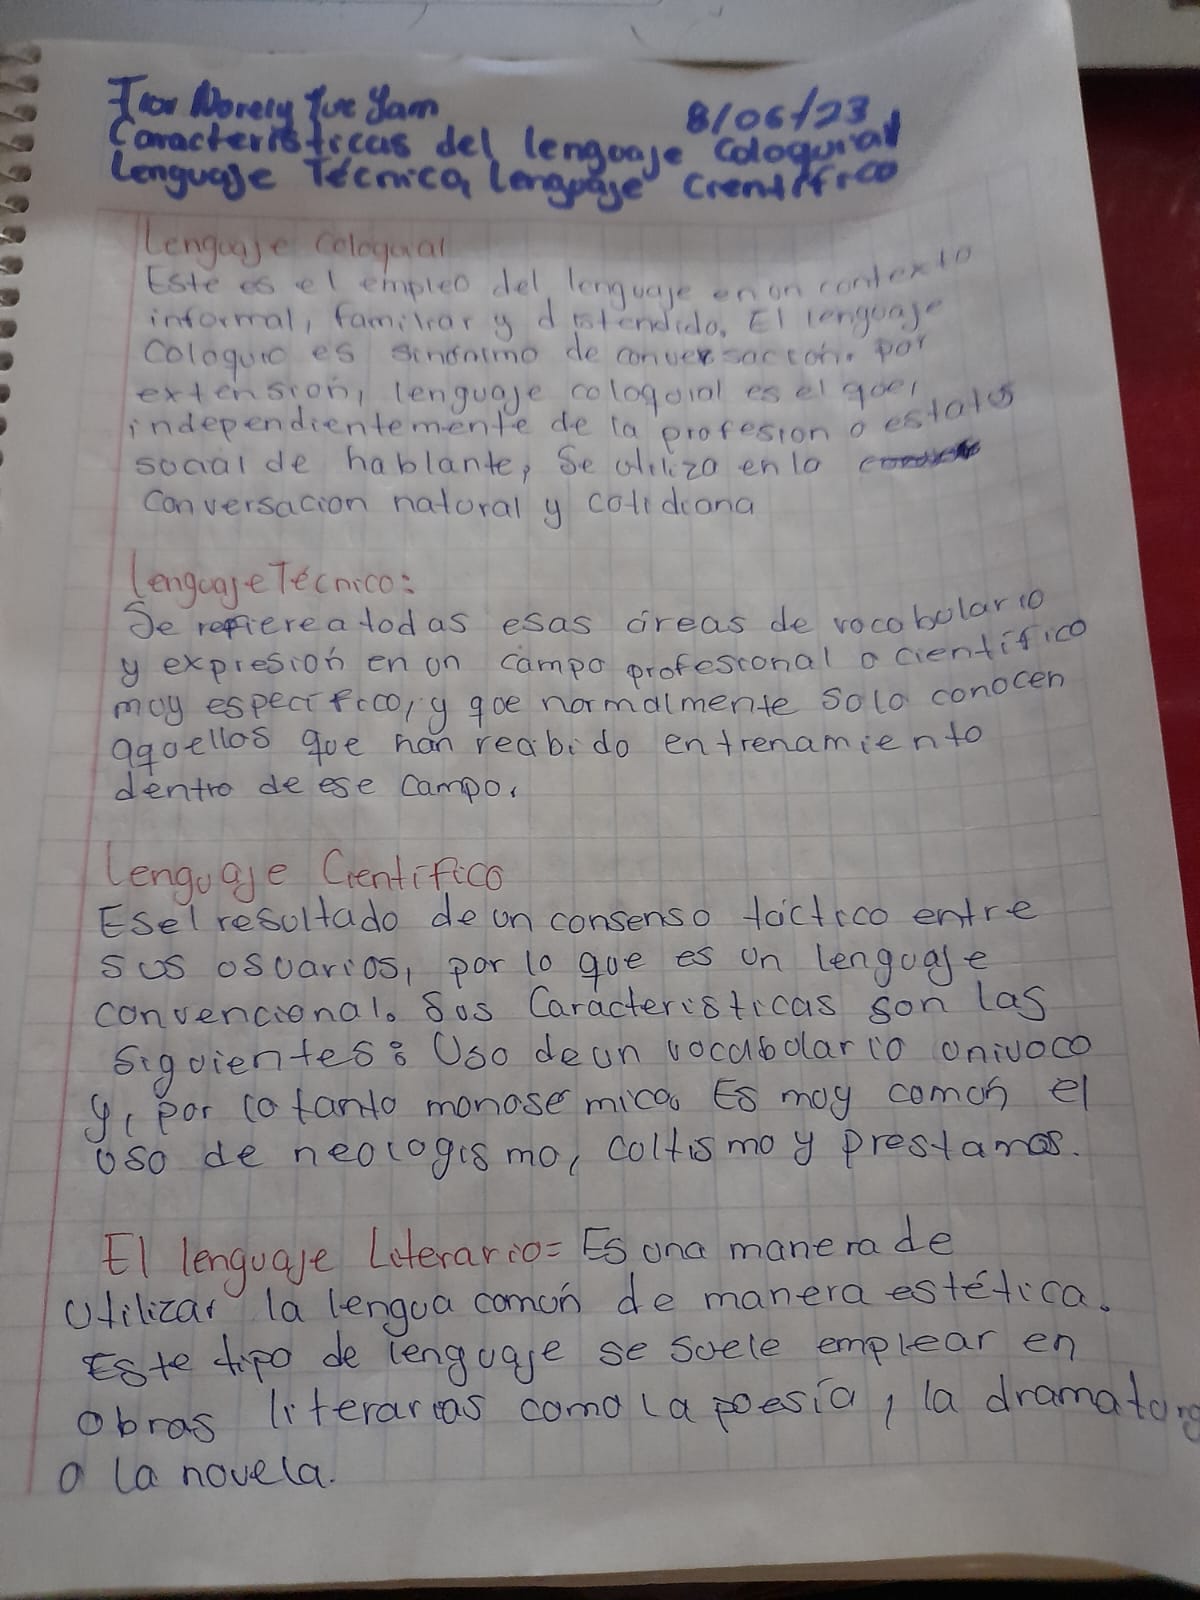 Flor Norely Tuc Yam 8/06/23
Caracteristicas del lenguaje Coloquial
Lenguaje Técnico, Lenguaje Cientifico
Lenguaje Coloquial
Este es el empleo del lenguaje en un contexto
informal, familiar y distendido. El lenguaje
Coloquio es sinónimo de conversación. por
extensión, lenguaje coloquial es el que,
independientemente de la profesion o estatus
social de hablante, Se utiliza en la
Conversacion natural y cotidiana
Lenguaje Técnico:
Se refiere a todas esas áreas de vocabulario
y expresión en un campo profesional o científico
muy especifico, y que normalmente solo conocen
aquellos que han recibido entrenamiento
dentro de ese campo.
Lenguaje Científico
Es el resultado de un consenso táctico entre
sus usuarios, por lo que es un lenguaje
convencional. Sus Caracteristicas son las
siguientes: Uso de un vocabulario univoco
y, por lo tanto monosemica. Es muy común el
uso de neologismo, cultismo y prestamos.
El lenguaje Literario= Es una manera de
utilizar la lengua común de manera estética.
Este tipo de lenguaje se suele emplear en
obras literarias como la poesía, la dramaturg
o la novela.